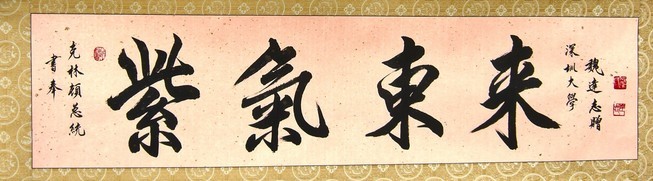 書奉
克林頓總統
紫氣東来
深圳大學
魏達志贈